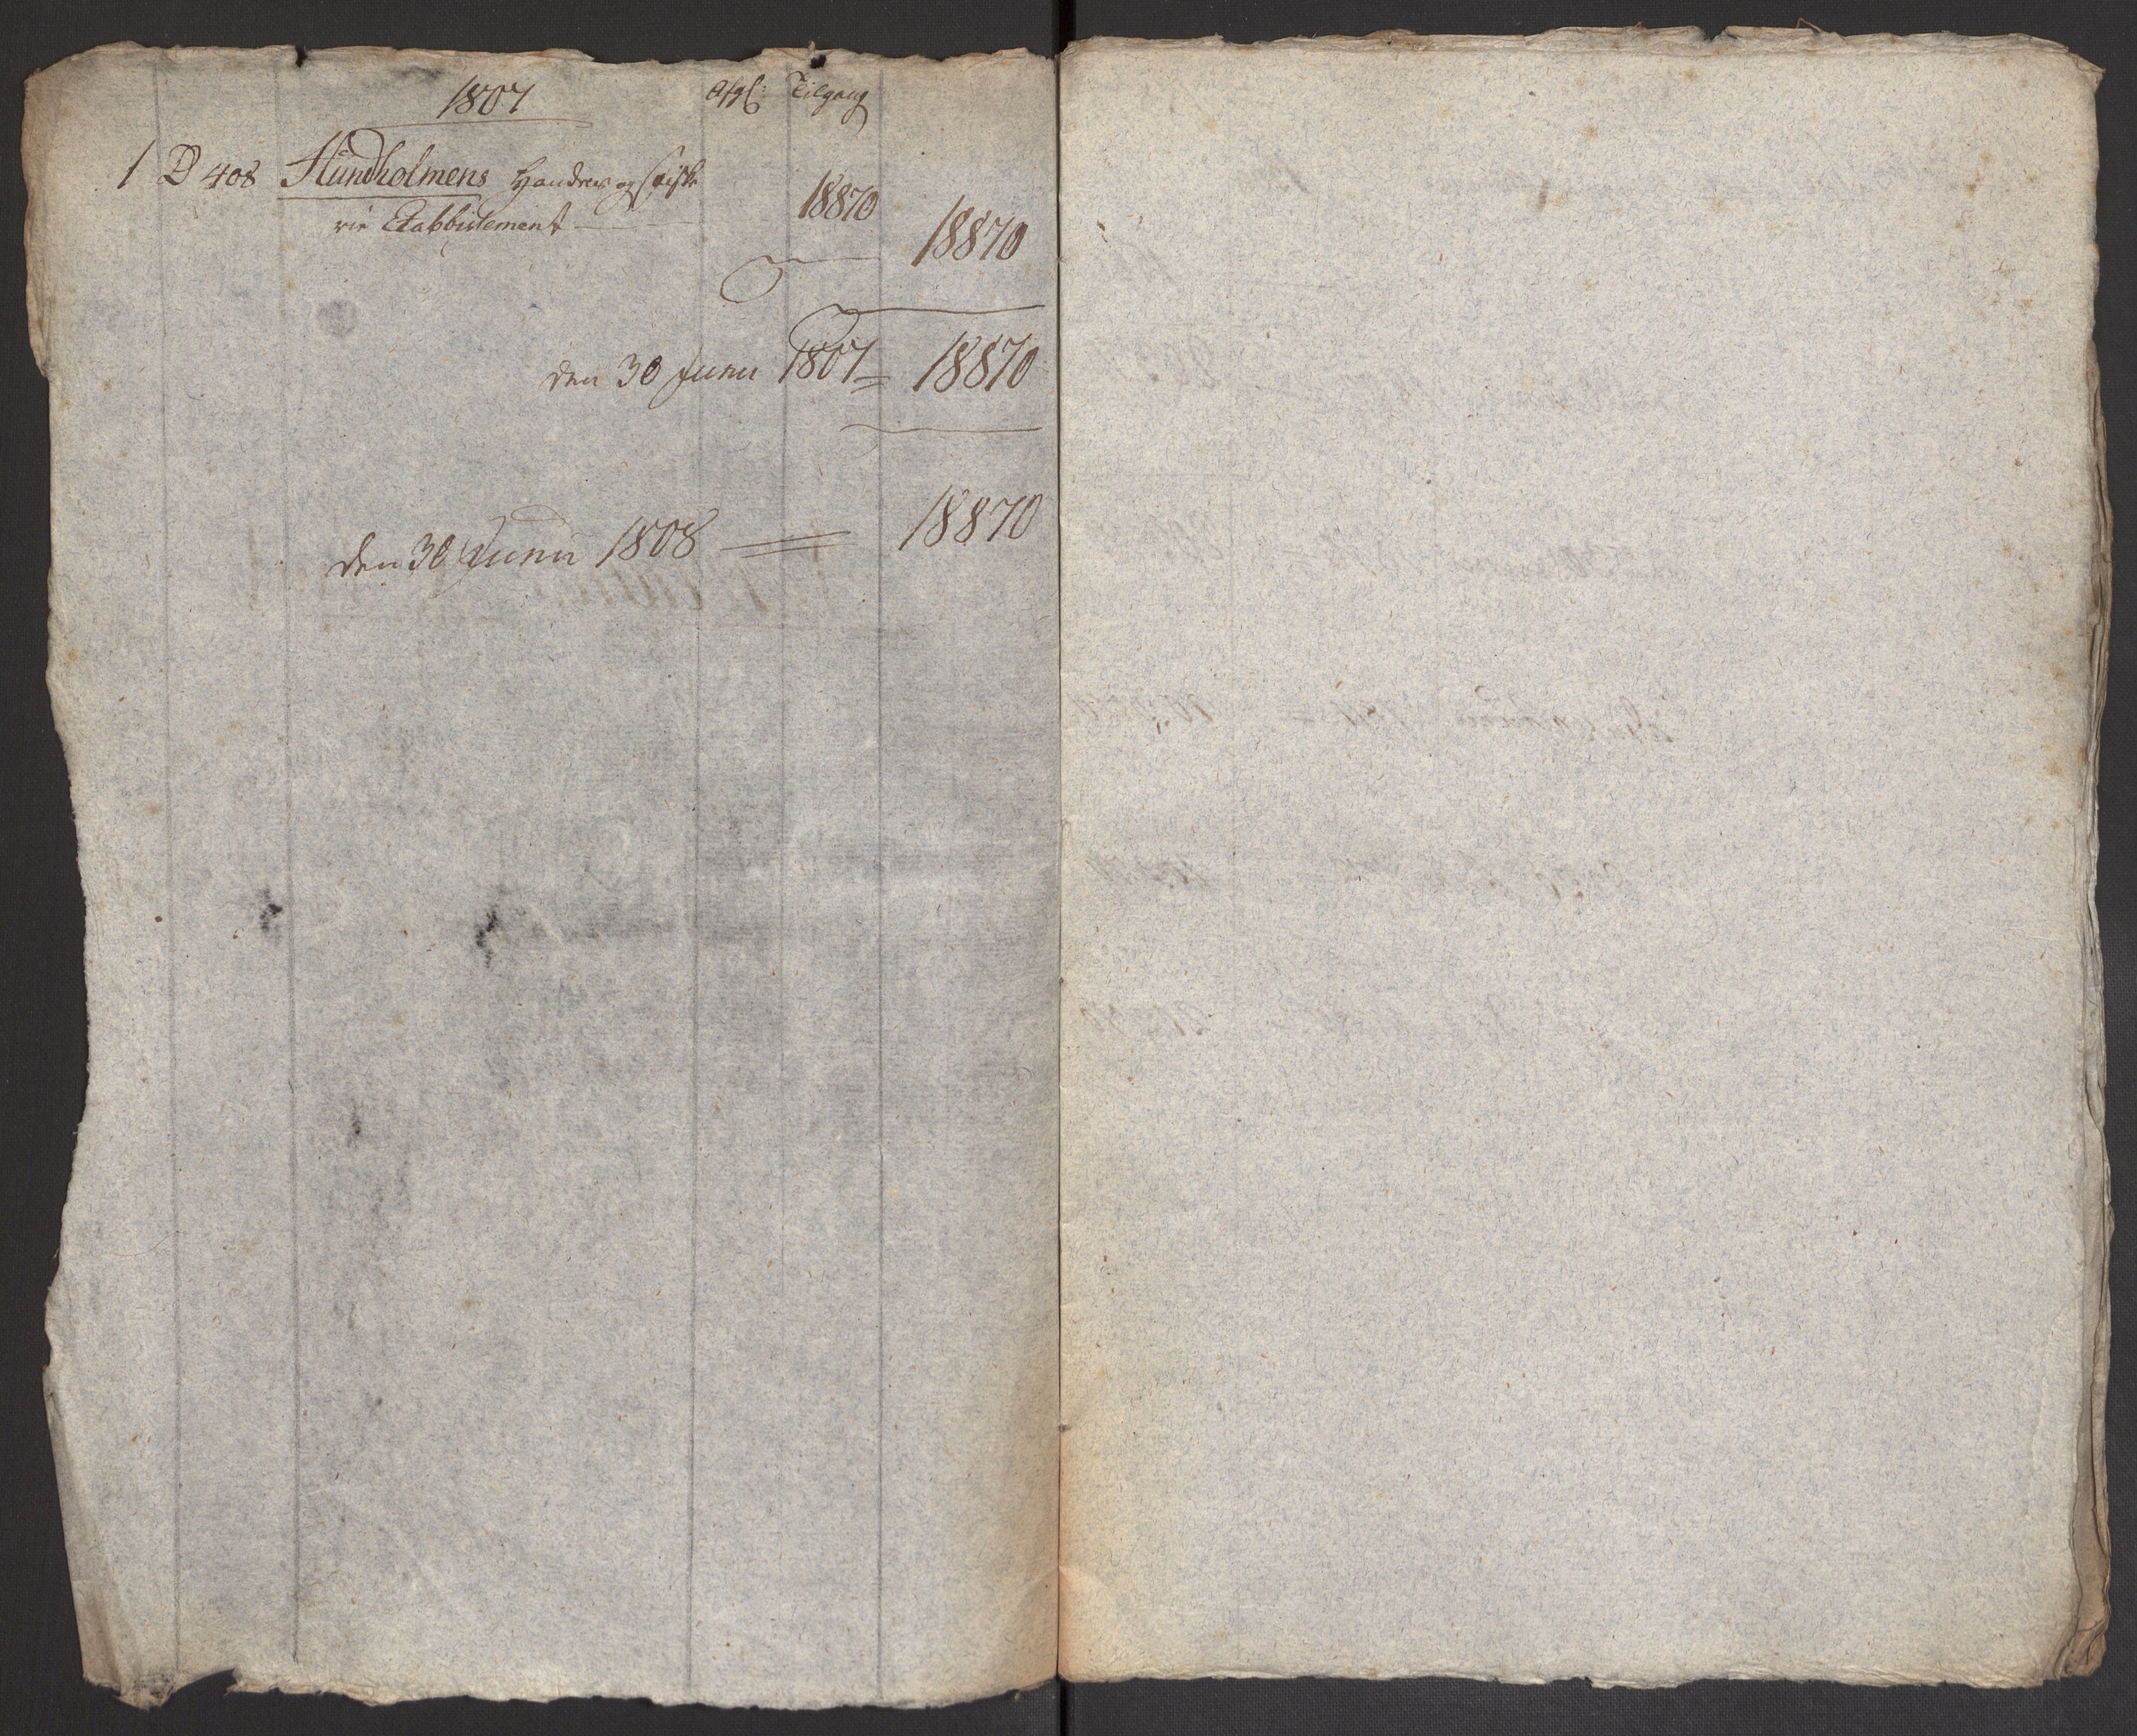 1807 Afg: Tilgang
1 D 408 Hundholmens Handels og Fiske
rie Etablisement 18870
18870
den 30 Junii 1807 = 18870
den 30 Junii 1808 = 18870